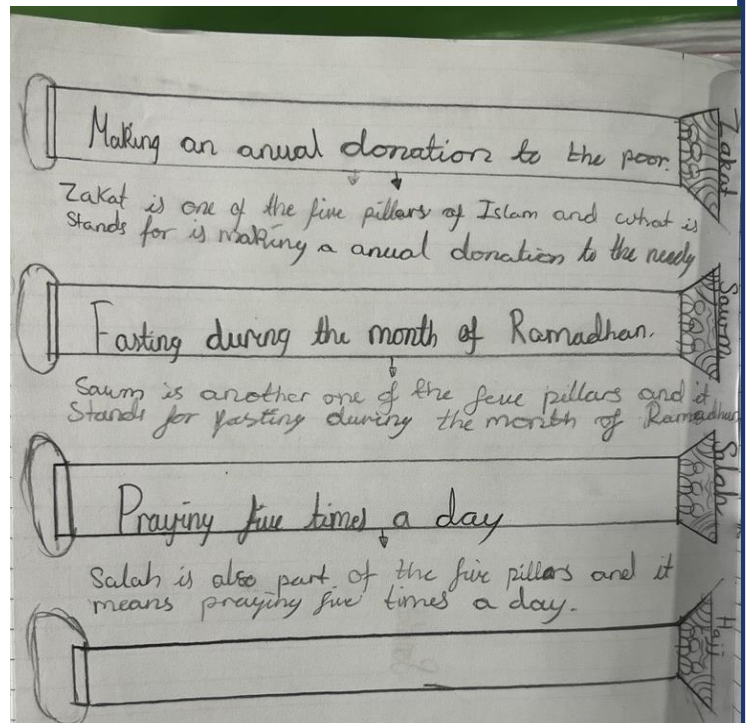 Zakat
Making an anual donation to the poor.
Zakat is one of the five pillars of Islam and what is
Stands for is making a anual donation to the needy
Sawm
Fasting during the month of Ramadhan.
Sawm is another one of the feve pillars and it
Stands for fasting during the month of Ramadhan
Salah
Praying five times a day
Salah is also part of the five pillars and it
means praying five times a day.
Hajj